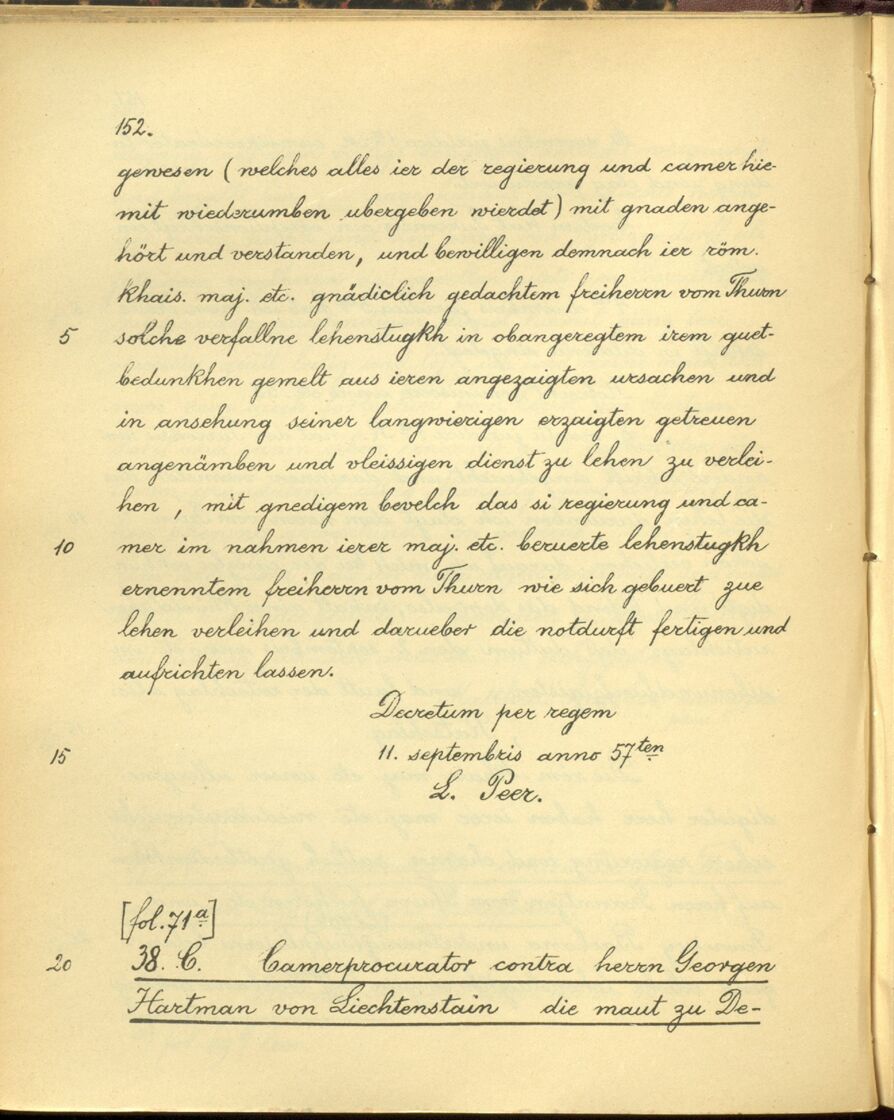 152.
gewesen (welches alles ier der regierung und camer hie-
mit wiederumben ubergeben wierdet) mit gnaden ange-
hört und verstanden, und bewilligen demnach ier röm.
khais. maj. etc. gnädiclich gedachtem freiherrn vom Thurn
5 solche verfallne lehenstugkh in obangeregtem irem guet-
bedunkhen gemelt aus ieren angezaigten ursachen und
in ansehung seiner langwierigen erzaigten getreuen
angenämben und vleissigen dienst zu lehen zu verlei-
hen, mit gnedigem bevelch das si regierung und ca-
10 mer im nahmen ierer maj. etc. beruerte lehenstugkh
ernenntem freiherrn vom Thurn wie sich gebuert zue
lehen verleihen und darueber die notdurft fertigen und
aufrichten lassen.
Decretum per regem
15 11. septembris anno 57ten
L. Peer.
[fol. 71a]
20 38. C. Camerprocurator contra herrn Georgen
Hartman von Liechtenstain die maut zu De-